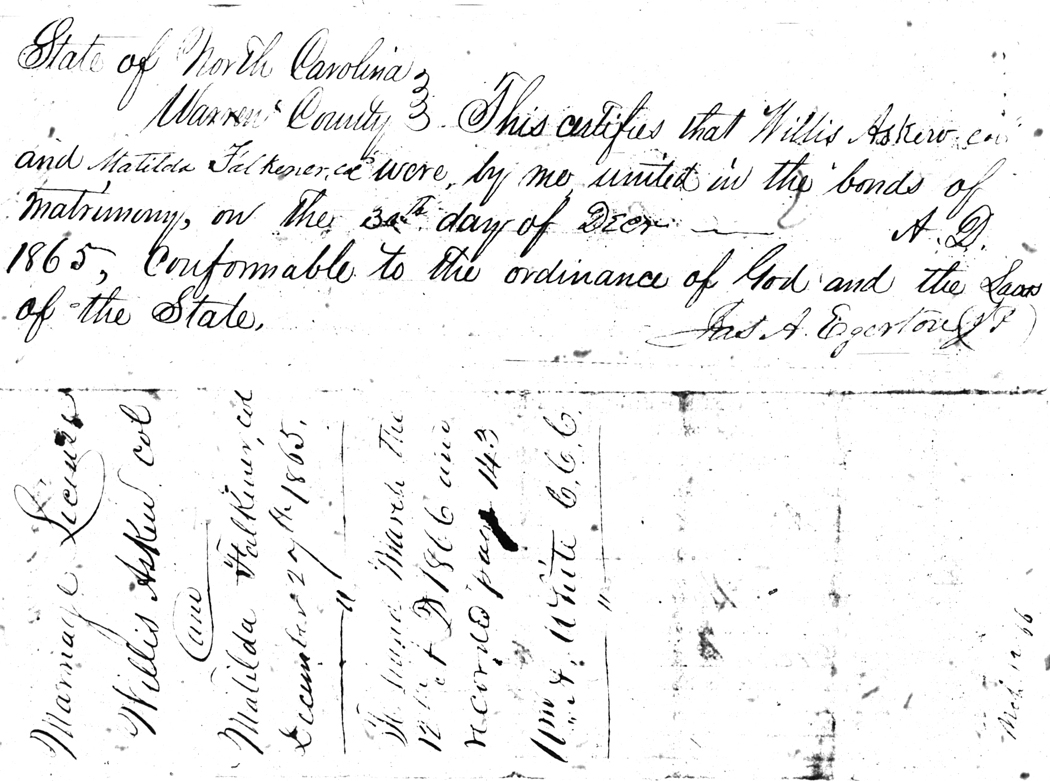 State of North Carolina
Warren County This certifies that Willis Askew col
and Matilda Falkener, col were, by me, united in the bonds of
matrimony, on the 30th day of Decr A. D.
1865, Conformable to the ordinance of God and the Laws
of the State.
Jas A. Egerton (JP)
Marriage License
Willis Askew col
and
Matilda Falkener, col
December 27th 1865.
March the
12th A D 1866 and
recorded page 143
Wm A. White C.C.C.
Mch 12 66